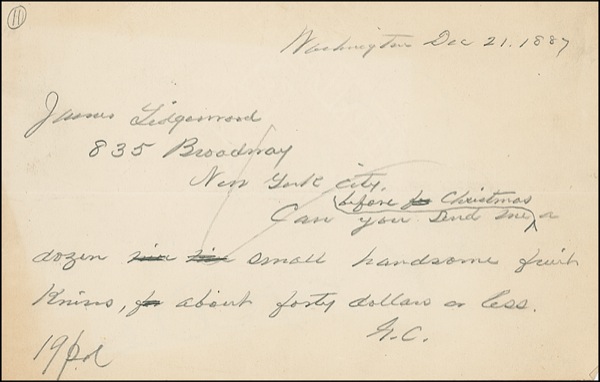 11
Washington Dec 21. 1887
James Lidgerwood
835 Broadway
New York city.
before for Christmas
Can you send me, a
dozen small handsome fruit
Knives, for about forty dollars or less.
G.C.
19 pd